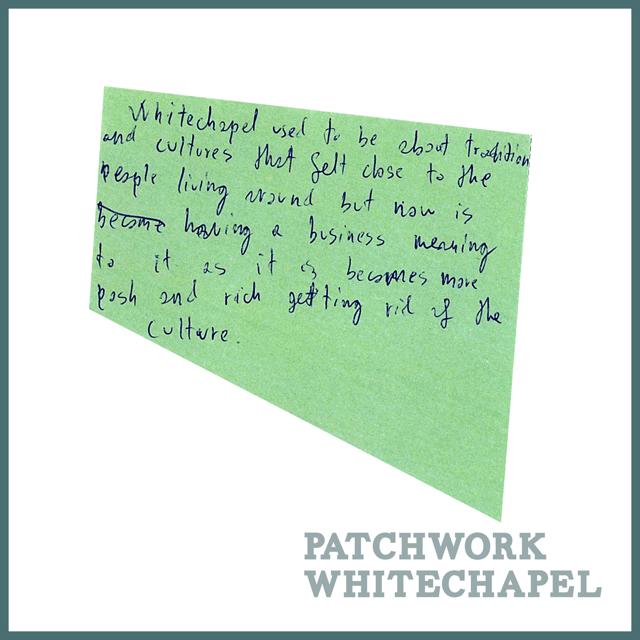 Whitechapel used to be about tradition
and cultures that felt close to the
people living around but now is
become having a business meaning
to it as it is becomes more
posh and rich getting rid of the
culture.
PATCHWORK
WHITECHAPEL